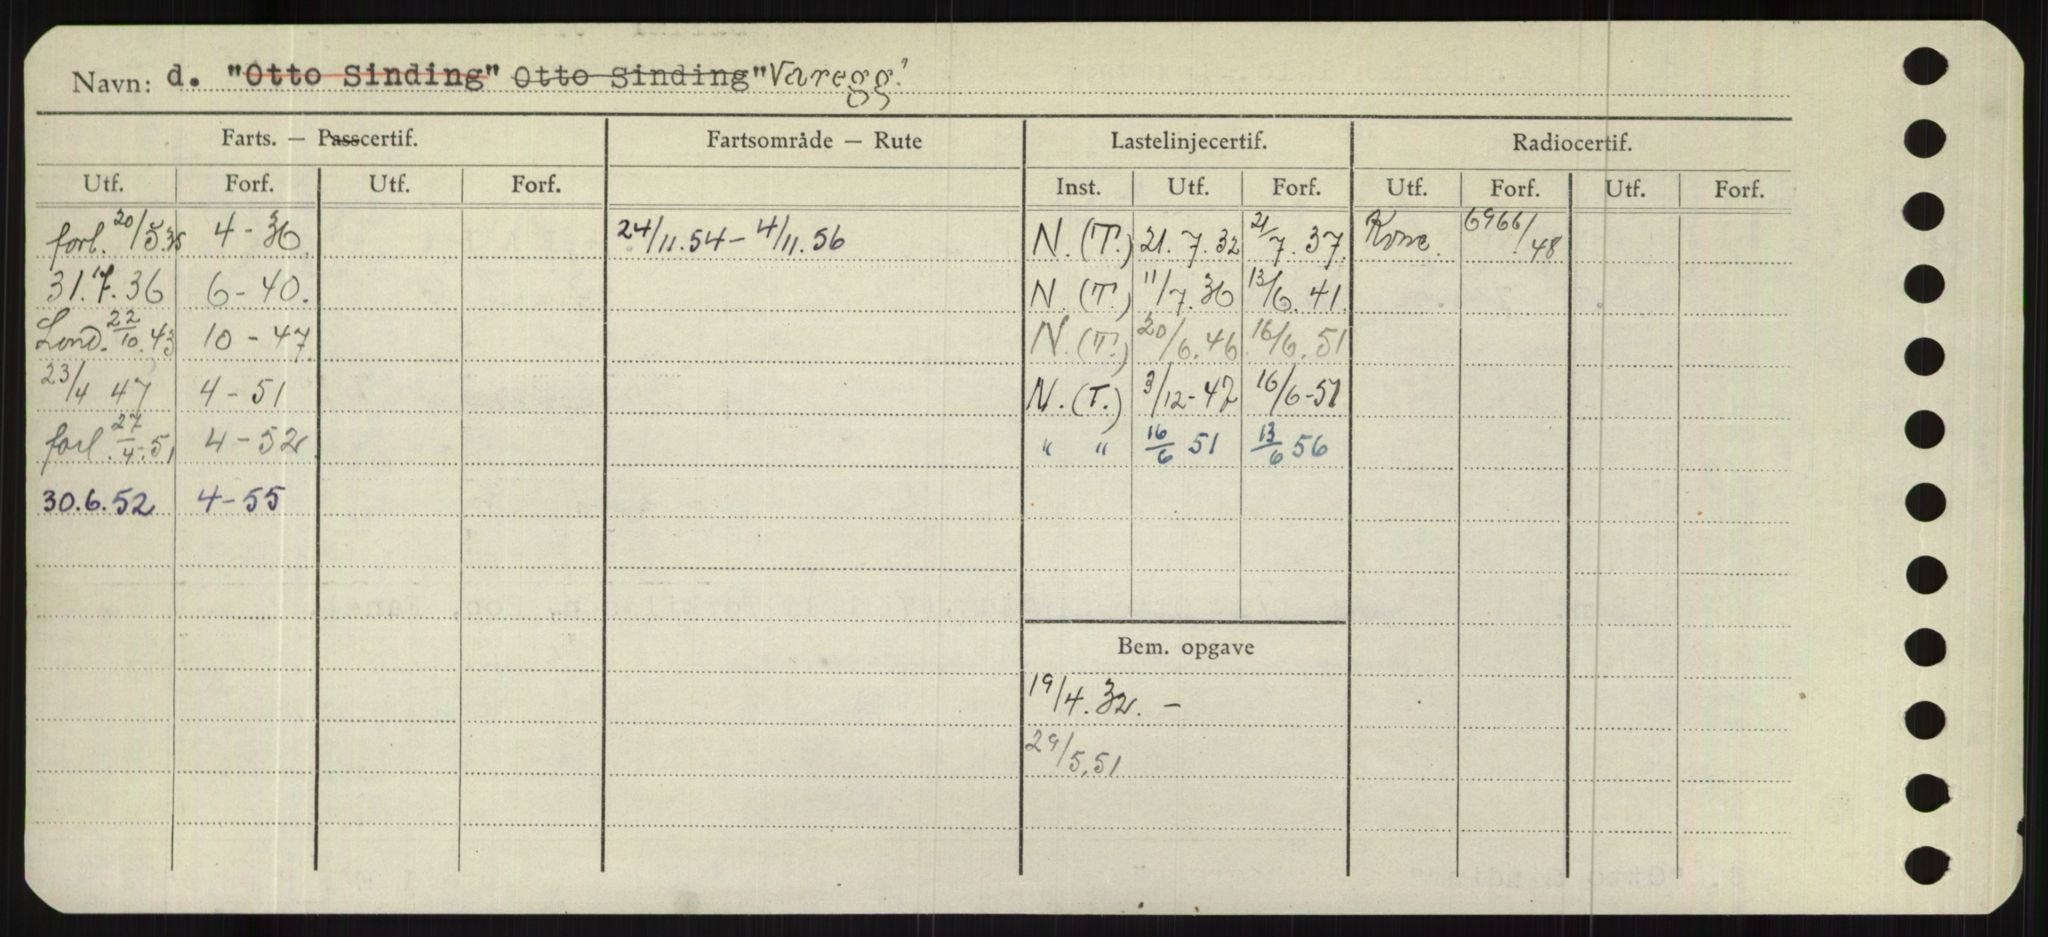 Navn: d. "Otto Sinding" Otto Sinding "Varegg"
Farts. — Passcertif. Fartsområde — Rute Lastelinjecertif. Radiocertif.
Utf. Forf. Utf. Forf. Inst. Utf. Forf. Utf. Forf. Utf. Forf.
forl. 20/5.35 4-36 24/11.54 - 4/11.56 N.(T.) 21.7.32 21/7.37 6966/48
31.7.36 6-40. N.(T.) 11/7.36 13/6.41
Lond. 22/10.43 10-47 N.(T.) 20/6.46 16/6.51
23/4 47 4-51 N.(T.) 3/12-47 16/6-51
forl. 27/4.51 4-52 " " 16/6 51 13/6 56
30.6.52 4-55
Bem. opgave
19/4.32. -
29/5.51